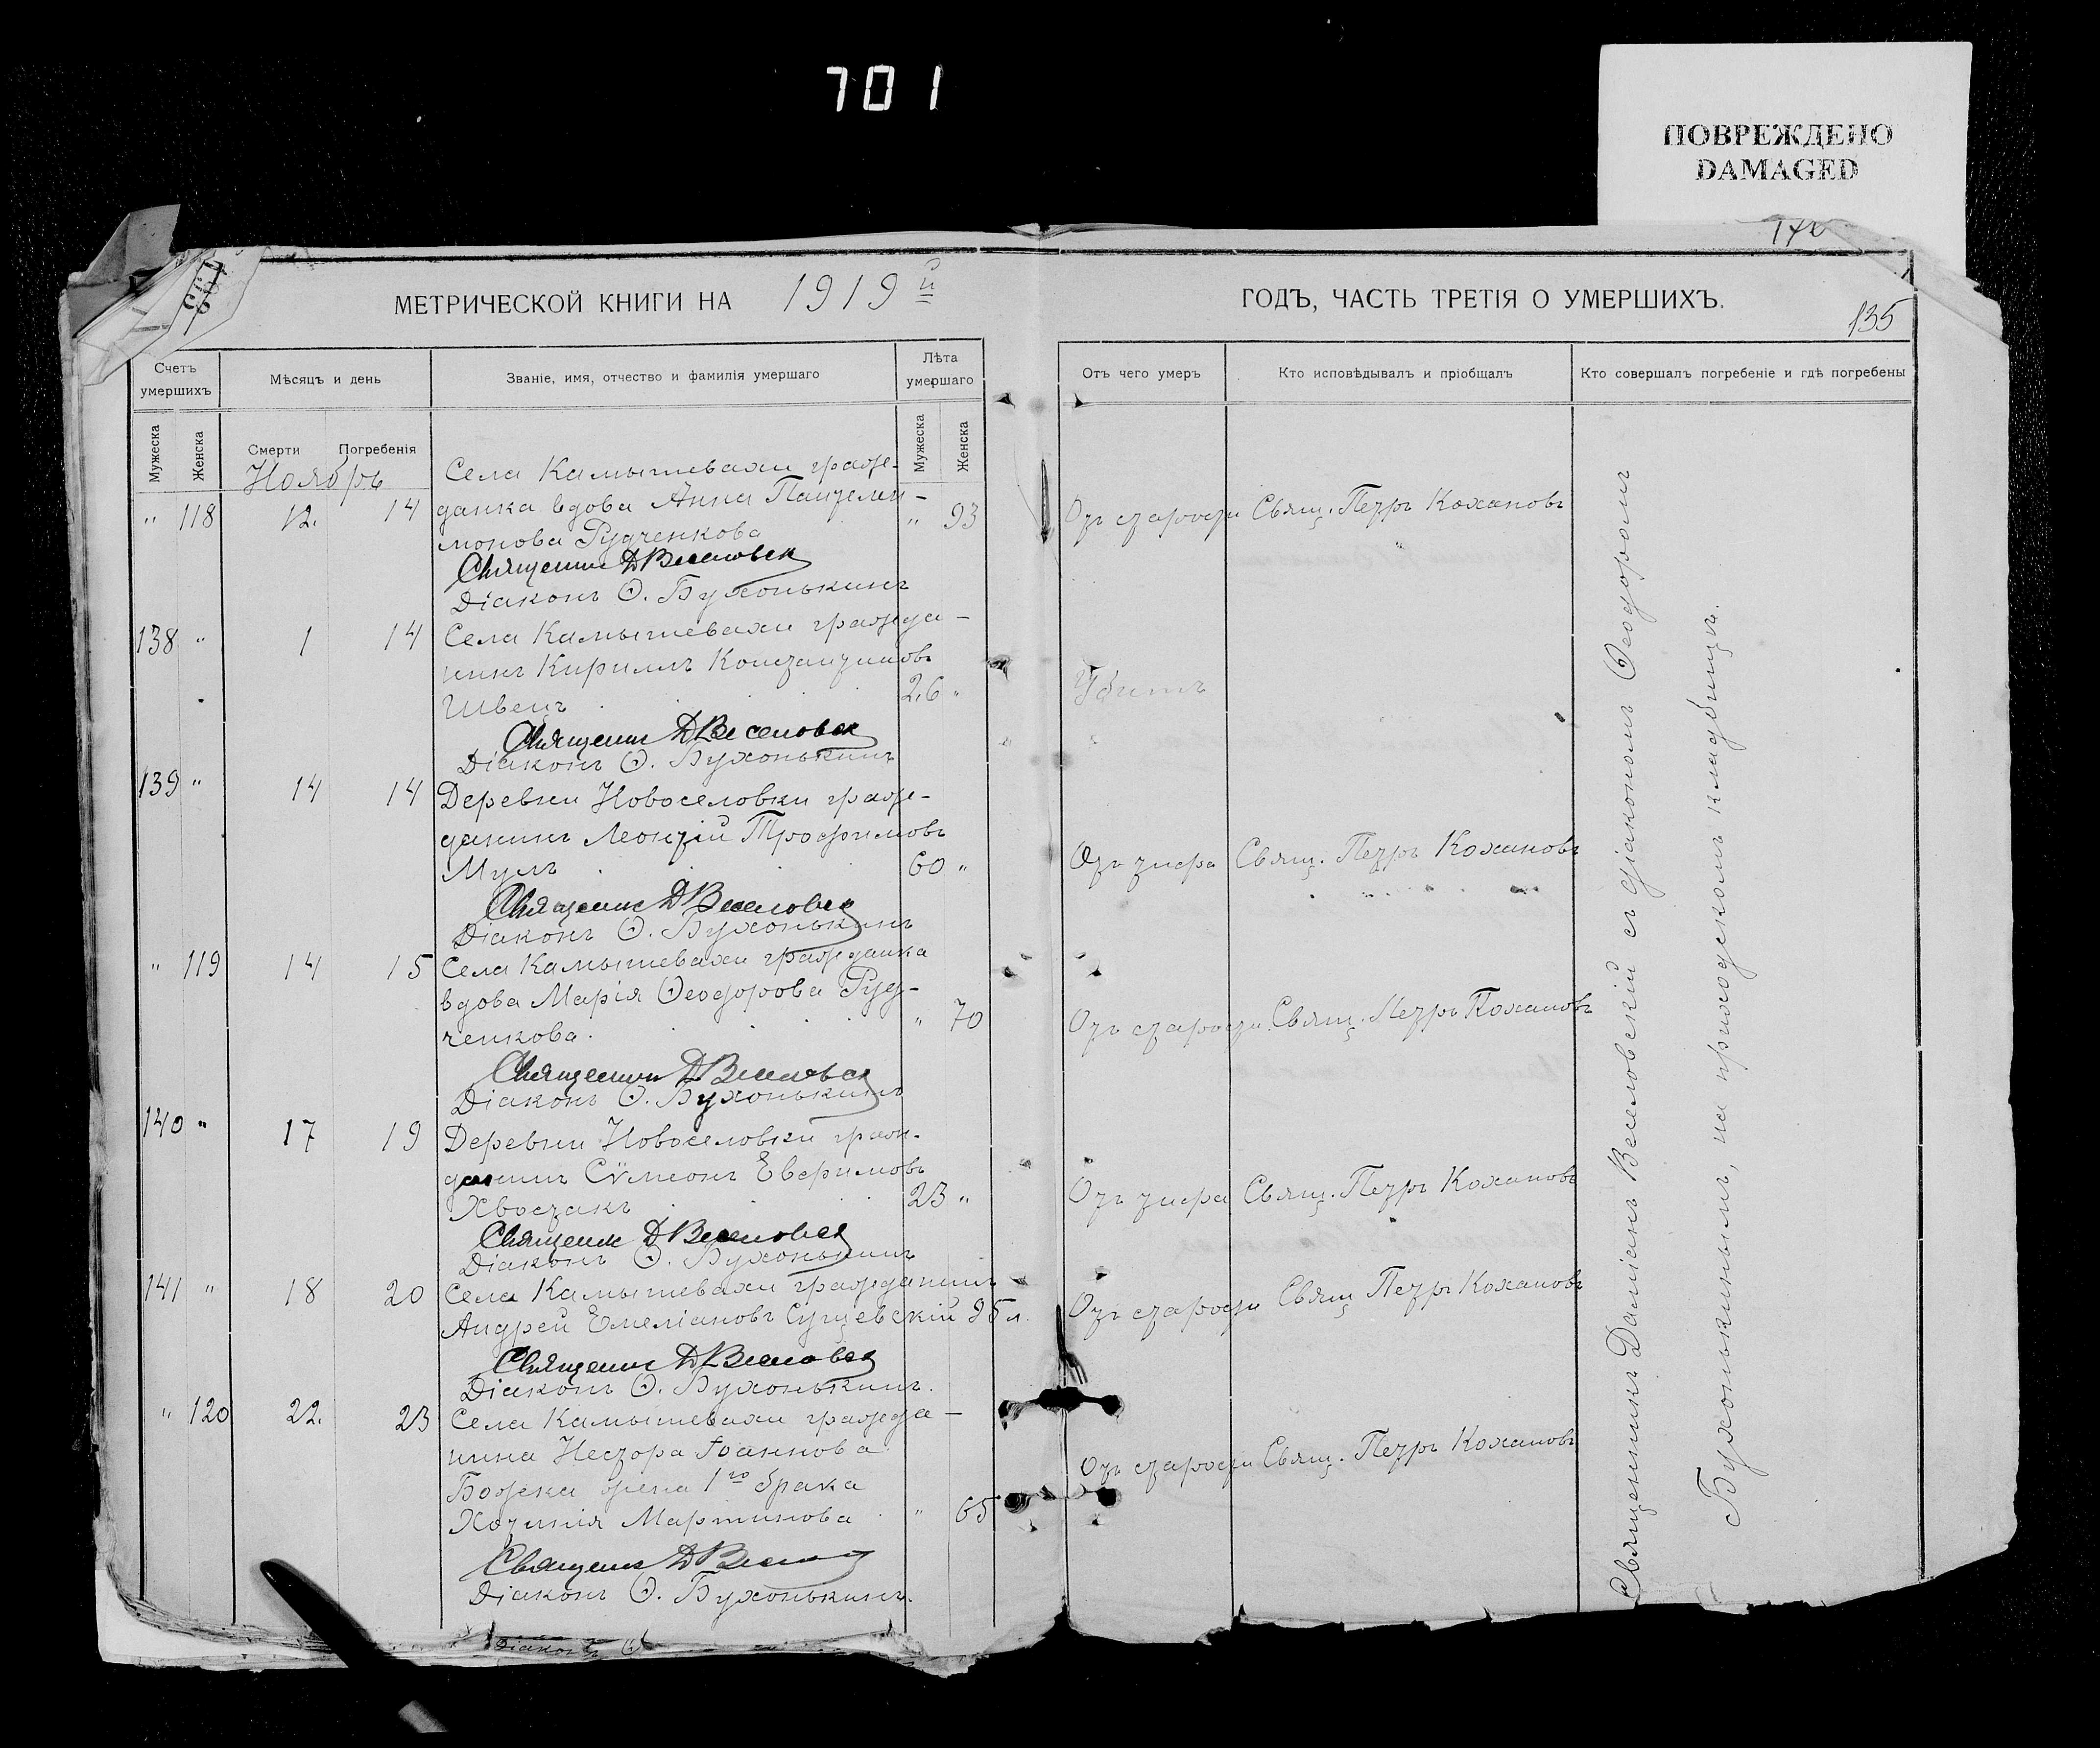 701
ПОВРЕЖДЕНО
DAMAGED
МЕТРИЧЕСКОЙ КНИГИ НА 1919й
ГОДЪ, ЧАСТЬ ТРЕТІЯ О УМЕРШИХЪ.
135
Счетъ умершихъ
Мѣсяцъ и день
Званіе, имя, отчество и фамилія умершаго
Лѣта умершаго
Отъ чего умеръ
Кто исповѣдывалъ и пріобщалъ
Кто совершалъ погребеніе и гдѣ погребены
Мужеска
Женска
Смерти
Погребенія
Мужеска
Женска
Ноябрь
Села Камышевахи граж-
" 118 12. 14 данка вдова Анна Пантелей- " 93 Отъ старости Свящ. Петръ Кохановъ
монова Рудченкова
Священник Д Веселовск
Діаконъ Ѳ. Бухонькинъ
138 " 1 14 Села Камышевахи гражда-
нинъ Кириллъ Константиновъ
Швецъ 26 " Убитъ
Священник Д Веселовск
Діаконъ Ѳ. Бухонькинъ
139 " 14 14 Деревни Новоселовки граж-
данинъ Леонтій Трофимовъ
Мулъ 60 " Отъ тифа Свящ. Петръ Кохановъ
Священник Д Веселовск
Діаконъ Ѳ. Бухонькинъ
" 119 14 15 Села Камышевахи гражданка
вдова Марія Ѳеодорова Руд-
ченкова. " 70 Отъ старости. Свящ. Петръ Кохановъ
Священник Д Веселовск
Діаконъ Ѳ. Бухонькинъ
140 " 17 19 Деревни Новоселовки граж-
данинъ Сѵмеонъ Евфимовъ
Хвостакъ 23 " Отъ тифа Свящ. Петръ Кохановъ
Священник Д Веселовск
Діаконъ Ѳ. Бухонькинъ
141 " 18 20 Села Камышевахи гражданинъ
Андрей Емеліановъ Сущевскій 95 л. Отъ старости Свящ Петръ Кохановъ
Священник Д Веселовск
Діаконъ Ѳ. Бухонькинъ.
" 120 22. 23 Села Камышевахи гражда-
нина Нестора Іоаннова
Божка жена 1го брака Отъ старости Свящ. Петръ Кохановъ
Мартинова " 65
Священник Д Весел
Діаконъ Ѳ. Бухонькинъ.
Священникъ Даміанъ Веселовскій съ діакономъ Ѳеодоромъ
Бухонькинымъ, на приходскомъ кладбищѣ.
Діаконъ Ѳ